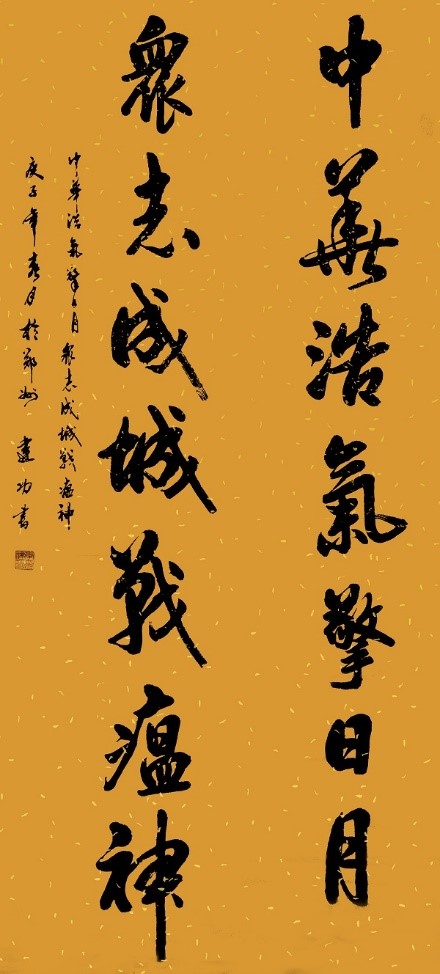 中華浩氣擎日月
衆志成城戰瘟神
中華浩氣擎日月 衆志成城戰瘟神
庚子年春月於鄭州 建功書